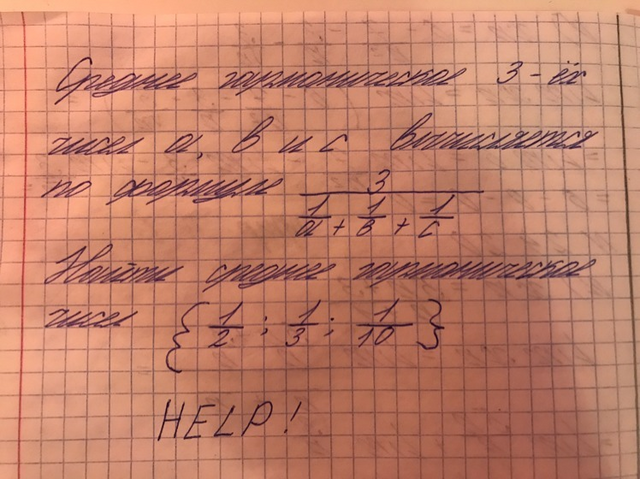 Среднее гармоническое 3-ёх
чисел a, b и c вычисляется
по формуле \frac{3}{\frac{1}{a} + \frac{1}{b} + \frac{1}{c}}
Найти среднее гармоническое
чисел { \frac{1}{2} ; \frac{1}{3} ; \frac{1}{10} }
HELP!